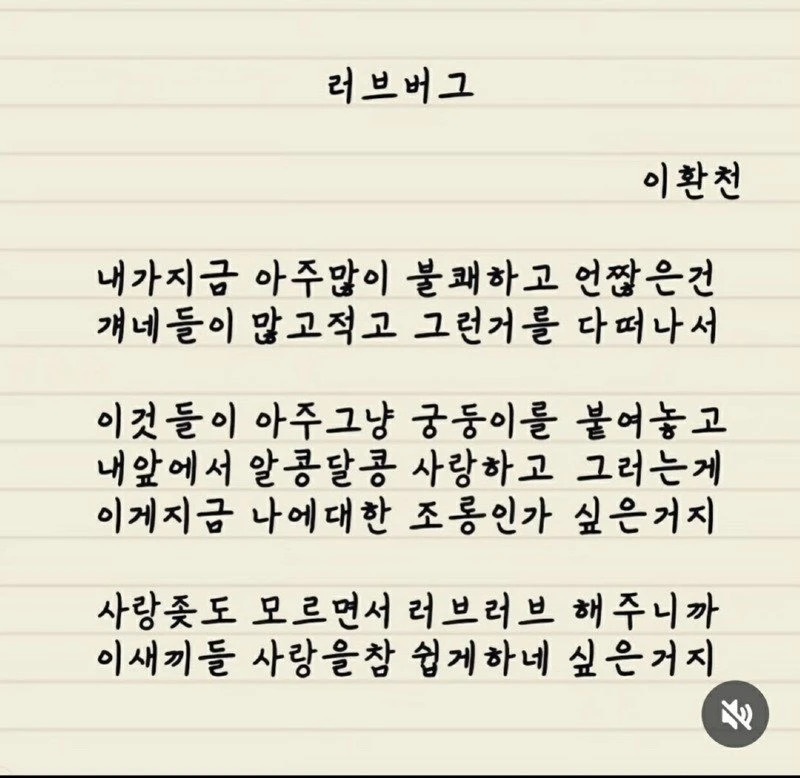 러브버그
이환천
내가지금 아주많이 불쾌하고 언짢은건
걔네들이 많고적고 그런거를 다떠나서
이것들이 아주그냥 궁둥이를 붙여놓고
내앞에서 알콩달콩 사랑하고 그러는게
이게지금 나에대한 조롱인가 싶은거지
사랑좆도 모르면서 러브러브 해주니까
이새끼들 사랑을참 쉽게하네 싶은거지